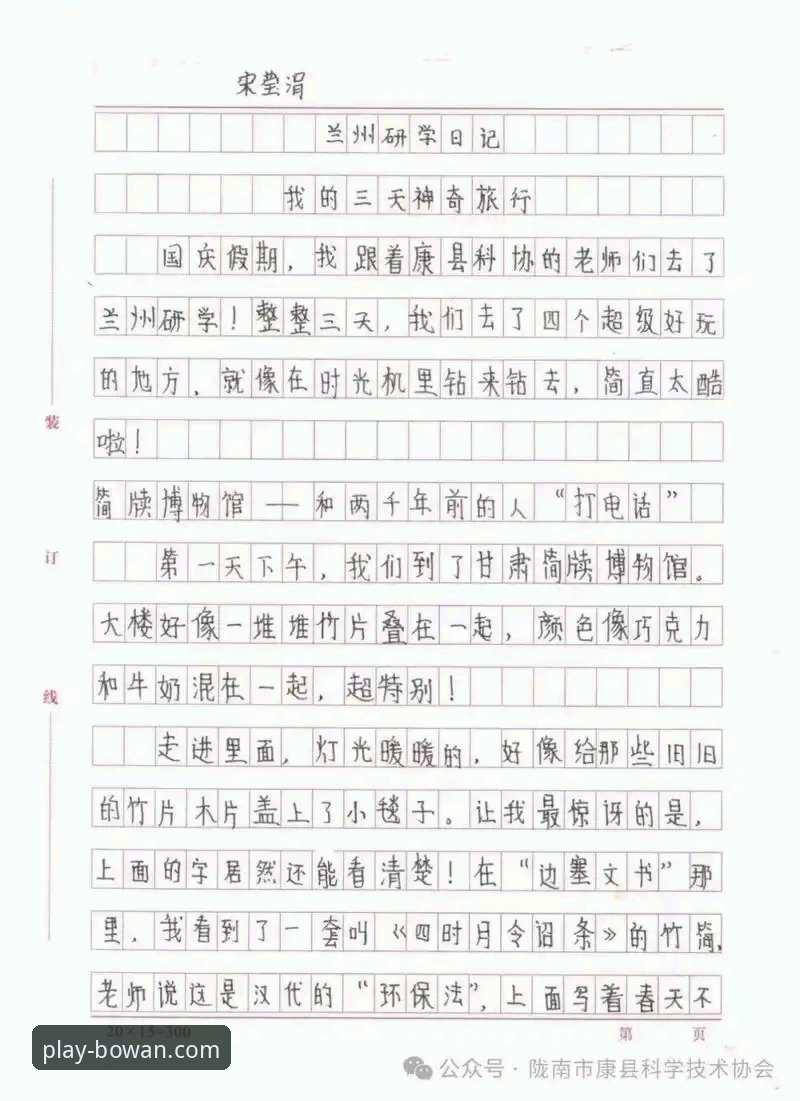 宋莹涓
兰州研学日记
我的三天神奇旅行
国庆假期，我跟着康县科协的老师们去了
兰州研学！整整三天，我们去了四个超级好玩
的地方，就像在时光机里钻来钻去，简直太酷
啦！
简牍博物馆——和两千年前的人“打电话”
第一天下午，我们到了甘肃简牍博物馆。
大楼好像一堆堆竹片叠在一起，颜色像巧克力
和牛奶混在一起，超特别！
走进里面，灯光暖暖的，好像给那些旧旧
的竹片木片盖上了小毯子。让我最惊讶的是，
上面的字居然还能看清楚！在“边塞文书”那
里，我看到了一套叫《四时月令诏条》的竹简，
老师说这是汉代的“环保法”，上面写着春天不
装
订
线
20×15=300
第 页
play-bowan.com
公众号·陇南市康县科学技术协会